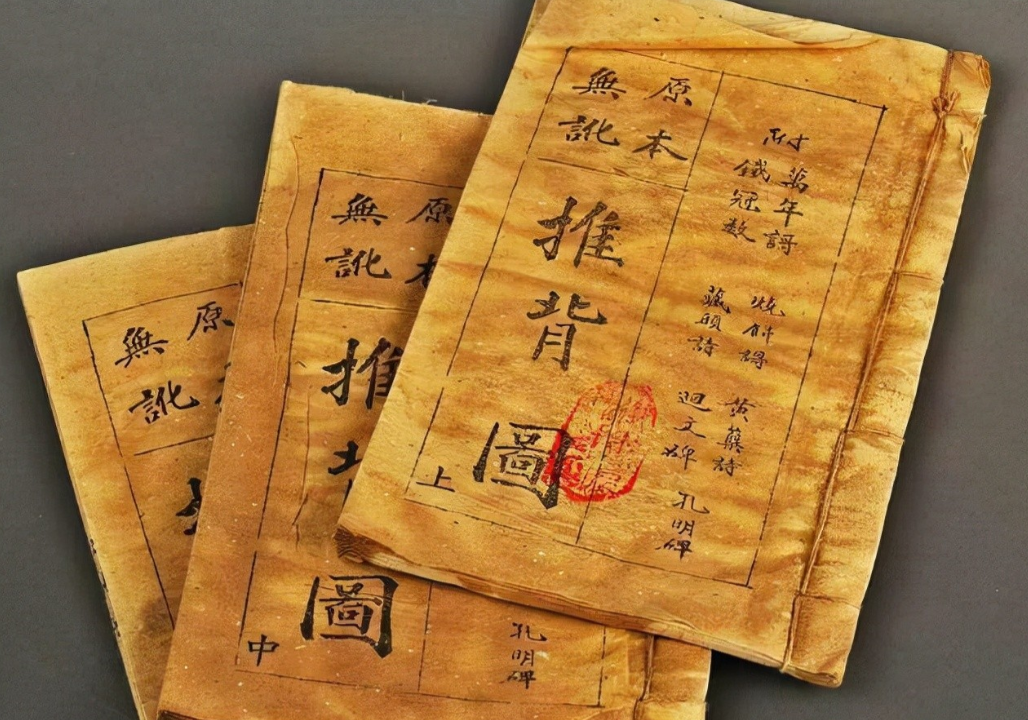 附
萬年謌
鐵冠數
燒餅謌
藏頭詩
黃蘗詩
迴文碑
孔明碑
原本
無訛
推背圖
上
原
無訛
推
圖
中
孔明碑
原
無訛